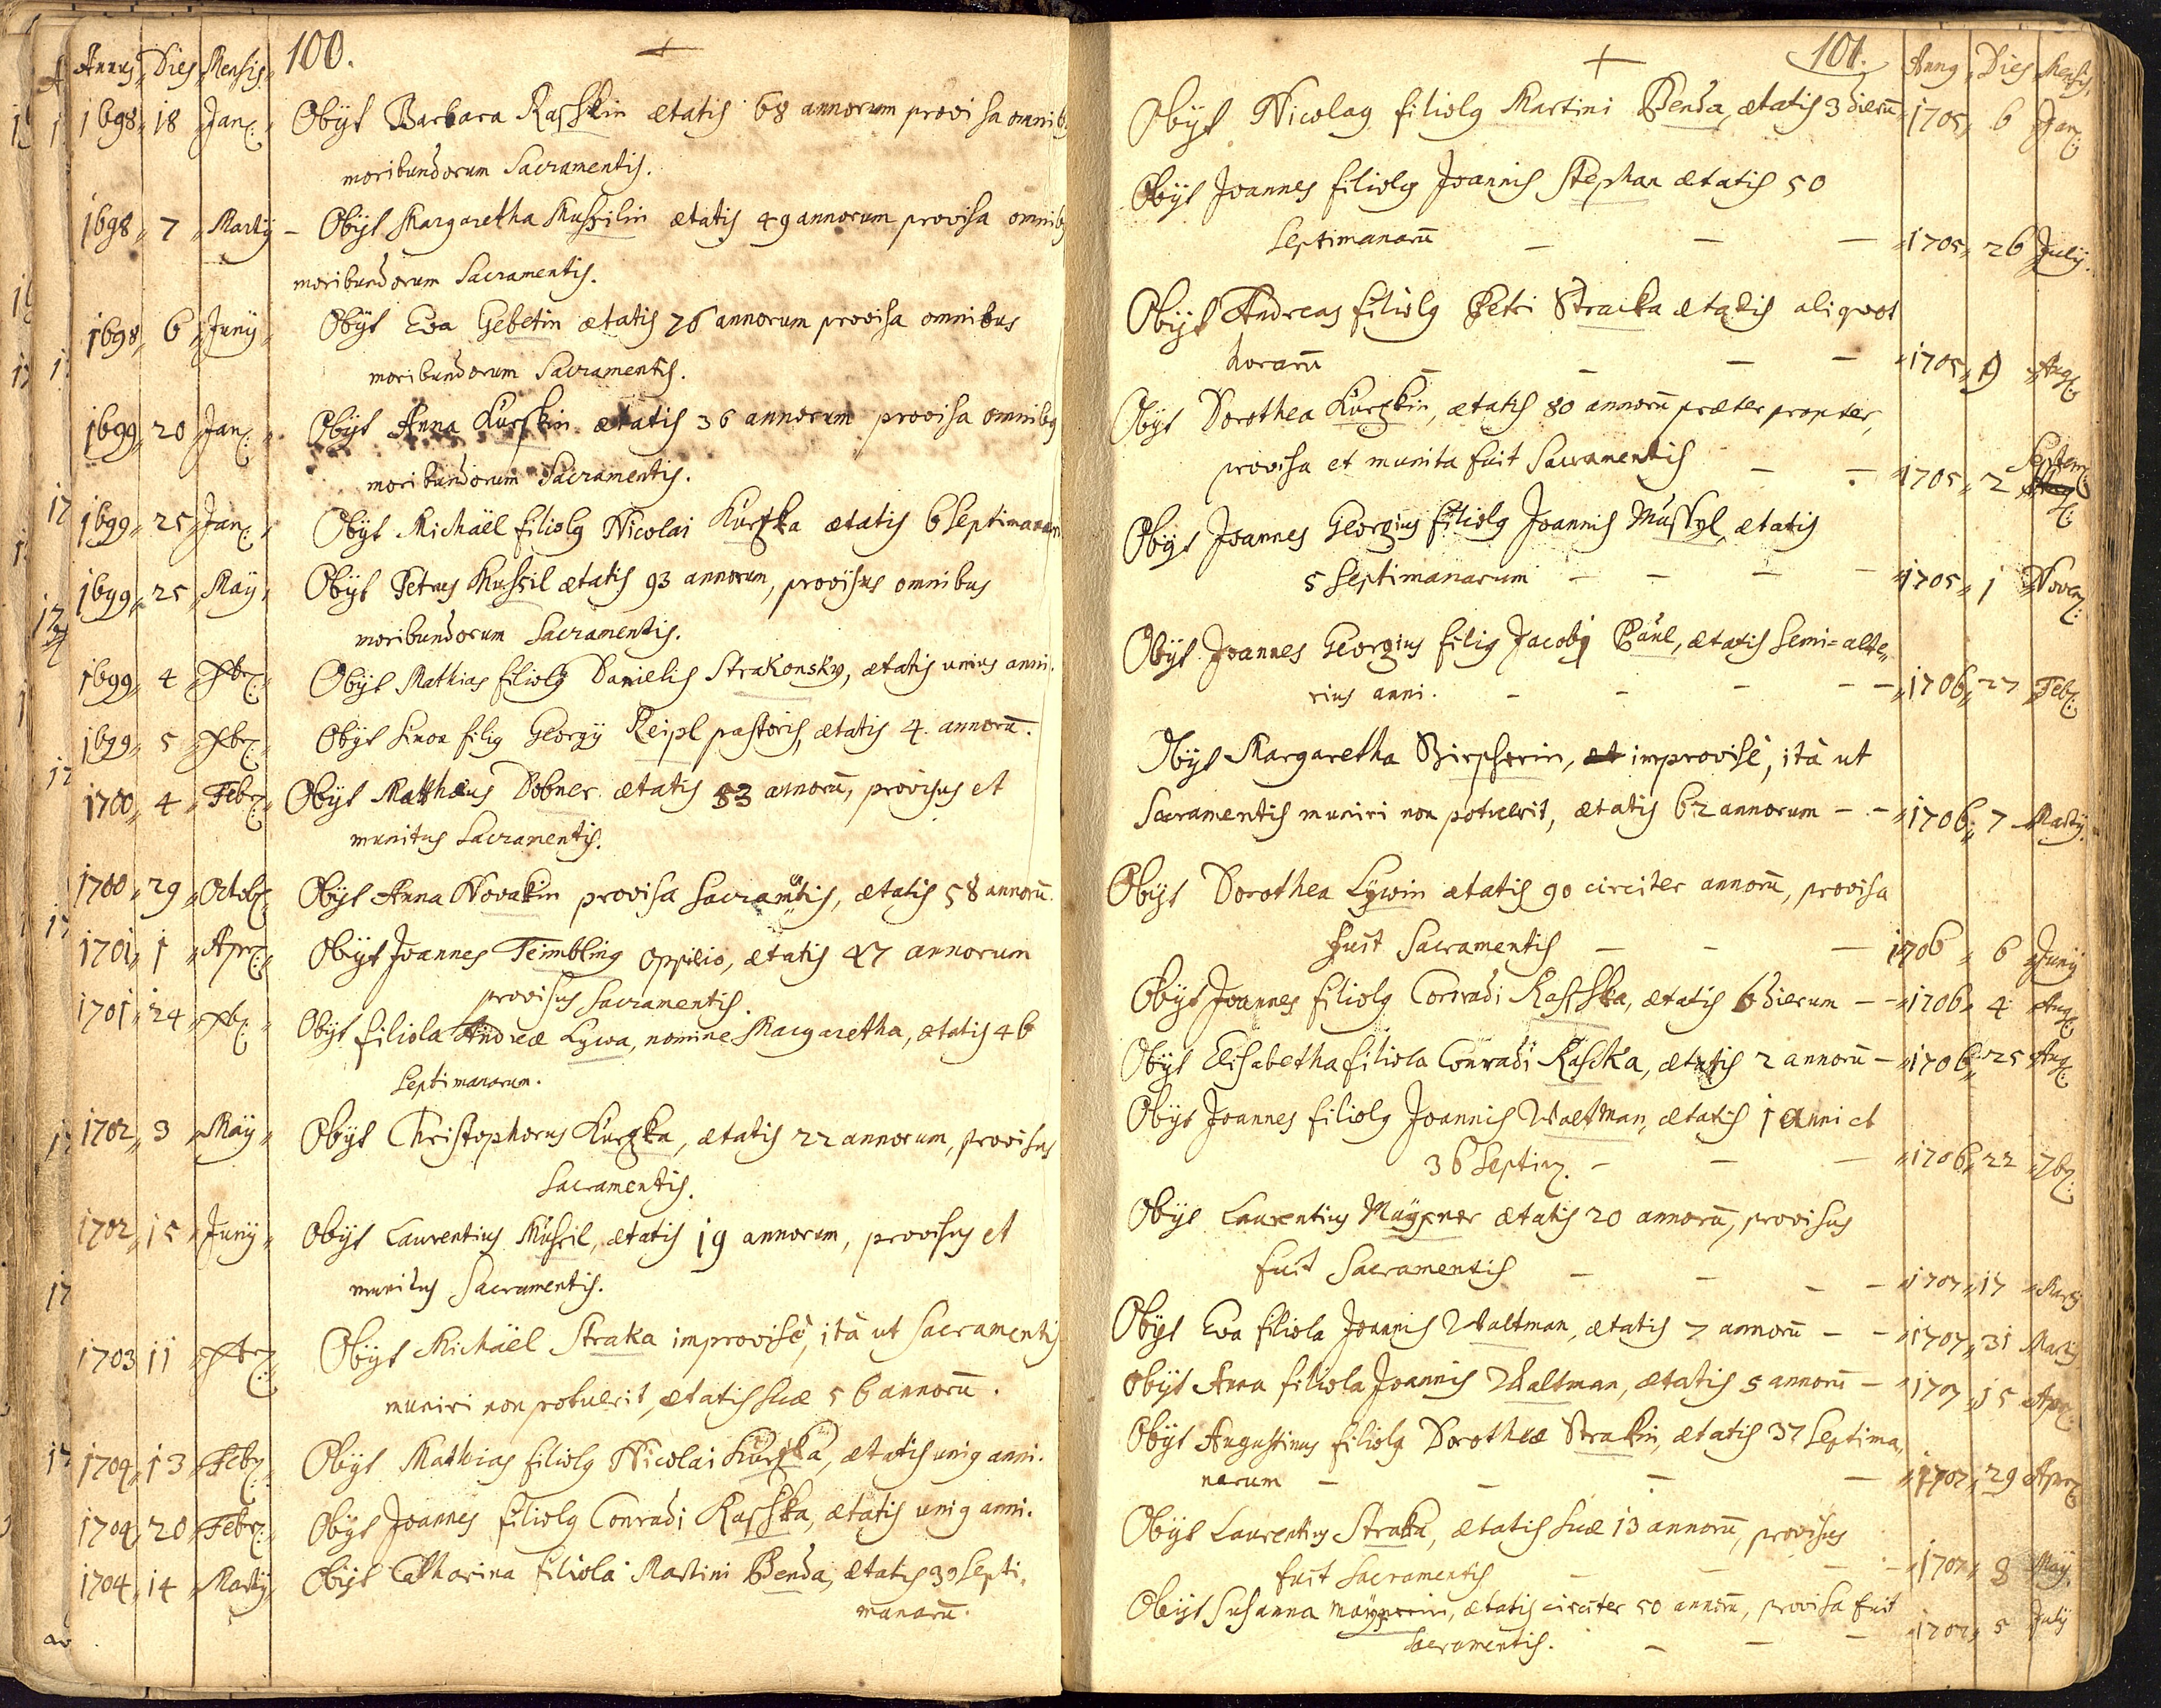 Annus Dies Mensis 100.
1698 18 Jan: Obijt Barbara Raschkin ætatis 68 annorum provisa omnib9
moribundorum Sacramentis.
1698 7 Martij - Obijt Margaretha Mussilin ætatis 49 annorum provisa omnib9
moribundorum Sacramentis.
1698 6 Junij Obijt Eva Gebetin ætatis 76 annorum provisa omnibus
moribundorum Sacramentis.
1699 20 Jan: Obijt Anna Kurskin ætatis 36 annorum provisa omnib9
moribundorum Sacramentis.
1699 25 Jan: Obijt Michäel filiol9 Nicolai Kurska ætatis 6 septimanarum
1699 25 Maij Obijt Petrus Mussil ætatis 93 annorum, provisus omnibus
moribundorum Sacramentis.
1699 4 Xbr: Obijt Mathias filiol9 Danielis Strakonsky, ætatis unius anni.
1699 5 Xbr: Obijt Simon fili9 Georgij Reipl pastoris, ætatis 4. annorū.
1700 4 Febr: Obijt Matthæus Dobner ætatis 83 annorū, provisus et
munitus Sacramentis.
1700 29 Octob: Obijt Anna Novakin provisa Sacramētis, ætatis 58 annorū.
1701 1 Apr: Obijt Joannes Teimbling Opilio, ætatis 47 annorum
provisus Sacramentis.
1701 24 Xb: Obijt filiola Andreæ Lywa, nomine Margaretha, ætatis 46
septimanarum.
1702 3 Maij Obijt Christophorus Kurska, ætatis 22 annorum, provisus
Sacramentis.
1702 15 Junij Obijt Laurentius Mussil, ætatis 19 annorum, provisus et
munitus Sacramentis.
1703 11 Xbr: Obijt Michäel Straka improvisè, ità ut sacramentis
muniri non potuerit, ætatis suæ 56 annorū.
1704 13 Febr: Obijt Mathias filiol9 Nicolai Kurska, ætatis uni9 anni.
1704 20 Febr: Obijt Joannes filiol9 Conradi Raschka, ætatis uni9 anni.
1704 14 Martij Obijt Catharina filiola Martini Benda, ætatis 30 septi,
manarū.
101. Ann9 Dies Mensis
Obijt Nicola9 filiol9 Martini Benda, ætatis 3 dierū 1705 6 Jan:
Obijt Joannes filiol9 Joannis Stephan ætatis 50
septimanarū - - - 1705 26 Julij.
Obijt Andreas filiol9 Petri Stracka ætatis aliquot
horarū - - - - 1705 9 Aug:
Obijt Dorothea Kurskin, ætatis 80 annorū præter propter,
provisa et munita fuit Sacramentis - - 1705 2 Septem:
Obijt Joannes Georgius filiol9 Joannis Mussyl, ætatis
5 septimanarum - - - - 1705 1 Novem:
Obijt Joannes Georgius fili9 Jacobi Paul, ætatis semi=alte,
rius anni. - - - - 1706 27 Febr:
Obijt Margaretha Birpherin, improvisè, ità ut
Sacramentis muniri non potuerit, ætatis 62 annorum - - 1706 7 Martij.
Obijt Dorothea Lywin ætatis 90 circiter annorū, provisa
fuit Sacramentis - - - 1706 6 Junij
Obijt Joannes filiol9 Conradi Raschka, ætatis 6 dierum - - 1706 4 Aug:
Obijt Elisabetha filiola Conradi Raschka, ætatis 2 annorū - 1706 25 Aug:
Obijt Joannes filiol9 Joannis Waltman, ætatis 1 anni et
36 septim: - - - 1706 22 7br:
Obijt Laurentius Mayxner ætatis 20 annorū, provisus
fuit Sacramentis - - - - 1707 17 Martij
Obijt Eva filiola Joannis Waltman, ætatis 7 annorū - - 1707 31 Martij
Obijt Anna filiola Joannis Waltman, ætatis 5 annorū - 1707 15 Apr:
Obijt Augustinus filiol9 Dorotheæ Strakin, ætatis 37 septima,
narum - - - - 1707 29 Apr:
Obijt Laurentius Straka, ætatis suæ 13 annorū, provisus
fuit Sacramentis - - - 1707 8 Maij
Obijt Susanna Mayxnerin, ætatis circiter 50 annorū, provisa fuit
sacramentis. - - - 1707 5 Julij